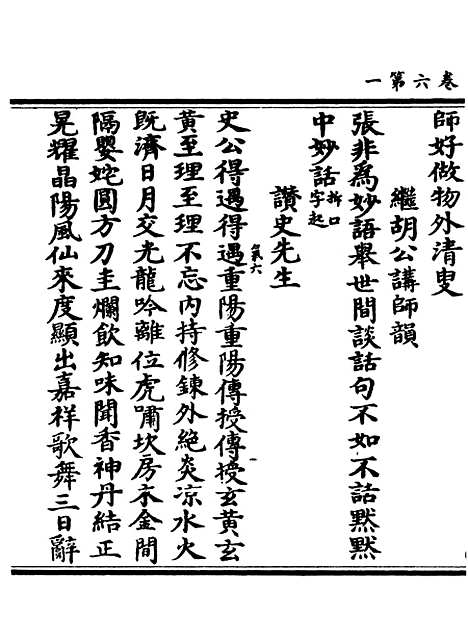 卷六第一
師好做物外清叟
繼胡公講師韻
張非為妙語舉世間談話句不如不話默默
中妙話拆口字起
讚史先生
氣六
史公得遇得遇重陽重陽傳授傳授玄黃玄
黃至理至理不忘內持修鍊外絕炎凉水火
既濟日月交光龍吟離位虎嘯坎房木金間
隔嬰姹圓方刀圭爛飲知味聞香神丹結正
晃耀晶陽風仙來度顯出嘉祥歌舞三日辭